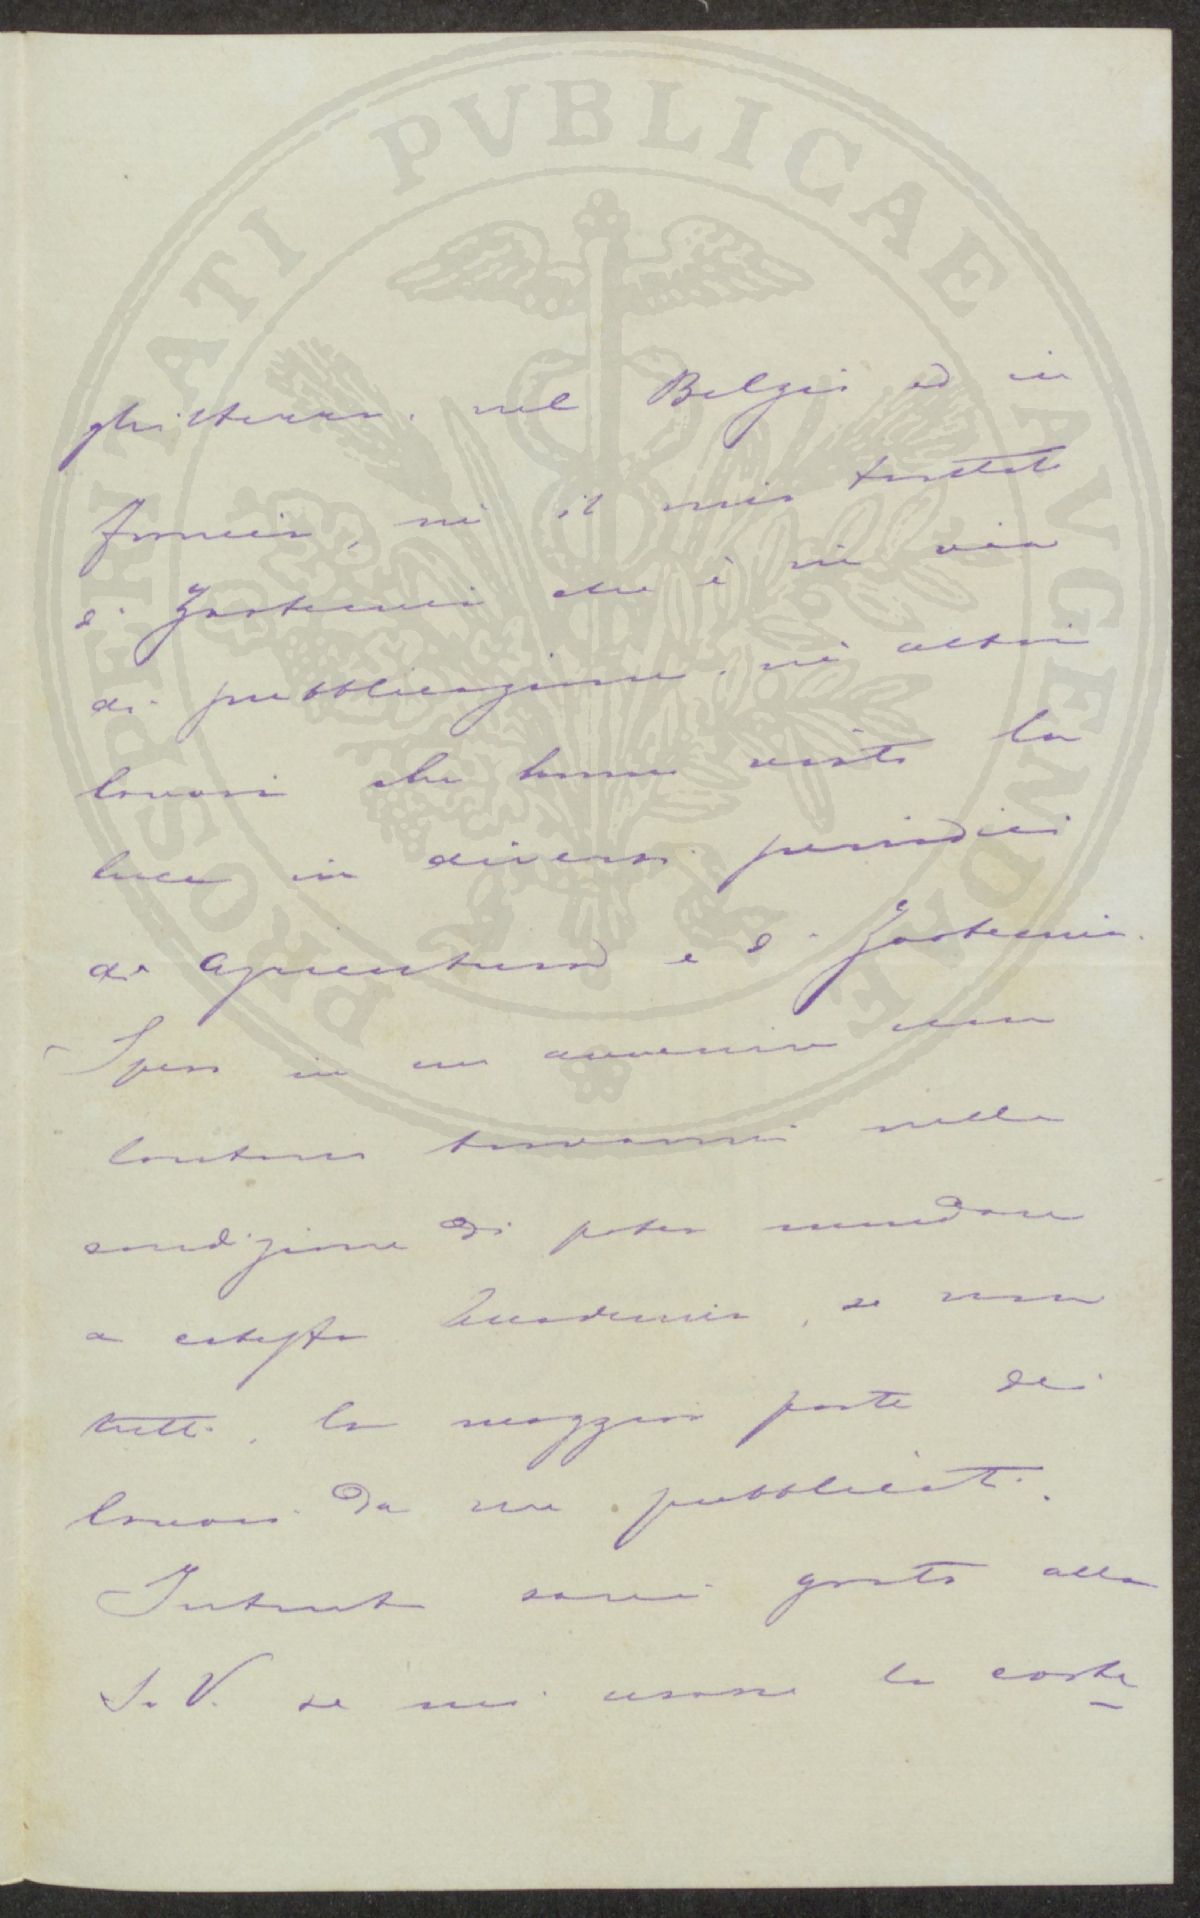 PROSPERITATI PVBLICAE AVGENDAE
ghilterra, nel Belgio ed in
Francia, nè il mio trattato
di Zootecnia che è in via
di pubblicazione, nè altri
lavori che hanno visto la
luce in diversi periodici
di agricoltura e di Zootecnia.
Spero in un avvenire non
lontano trovarmi nella
condizione di poter mandare
a cotesta Accademia, se non
tutti, la maggior parte dei
lavori da me pubblicati.
Intanto sarei grato alla
S. V. se mi usasse la corte